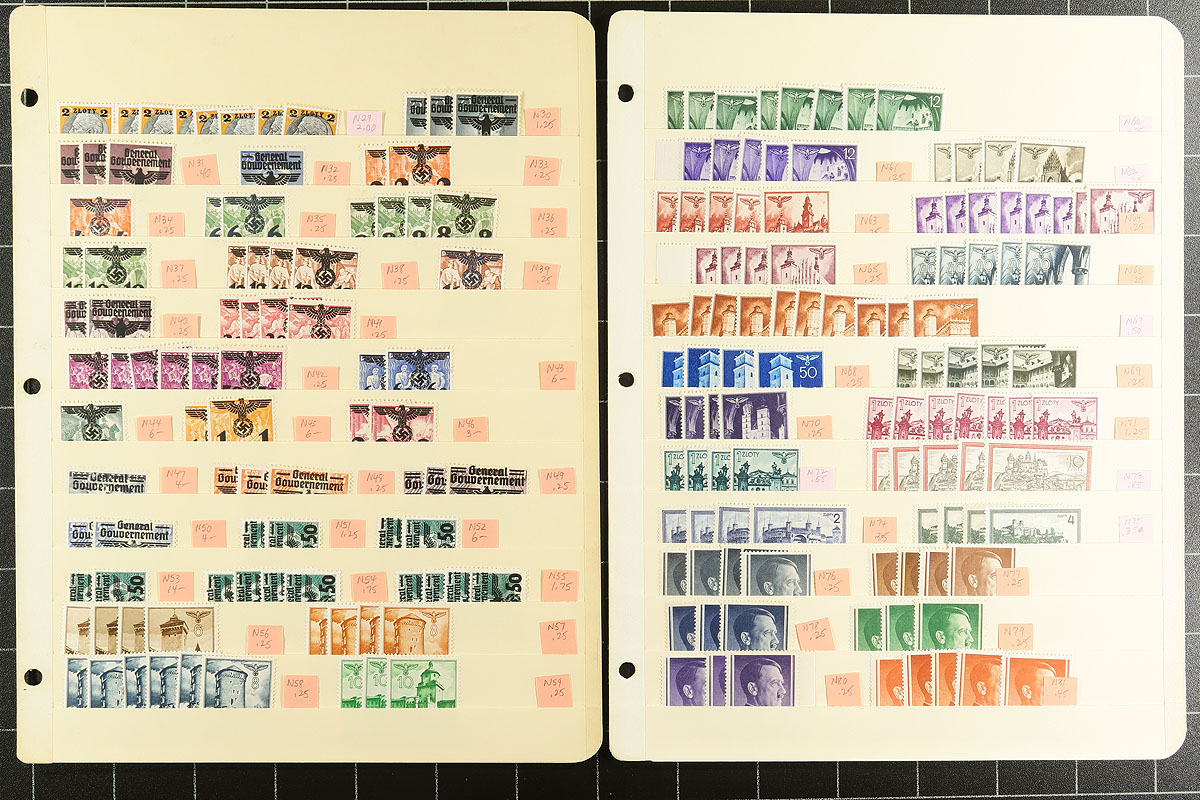 2 ZLOTY 2
N29
2.00
General
Gouvernement
N30
1.25
General
Gouvernement
N31
.40
General
Gouvernement
N32
.25
N33
.25
N34
.25
6 6 6
N35
.25
8 8 8
N36
.25
N37
.25
N38
.25
N39
.25
General
Gouvernement
N40
.25
N41
.25
N42
.25
N43
6-
N44
6-
N45
6-
N46
3-
General
Gouvernement
N47
4-
General
Gouvernement
N48
.25
General
Gouvernement
N49
.25
General
Gouvernement
N50
4-
50
N51
1.25
50
N52
6-
50
N53
14-
N54
.75
50
N55
1.75
N56
.25
N57
.25
N58
.25
10
N59
.25
12
N60
12
N61
.25
N62
N63
.25
N65
.25
N66
.25
N67
.50
50
N68
.25
N69
.25
N70
.25
1 ZLOTY
N71
1.25
1 ZLOTY
N72
.55
10
N73
.85
2
N74
4
N76
.25
N77
.25
N78
.25
N79
.25
N80
.25
N81
.45